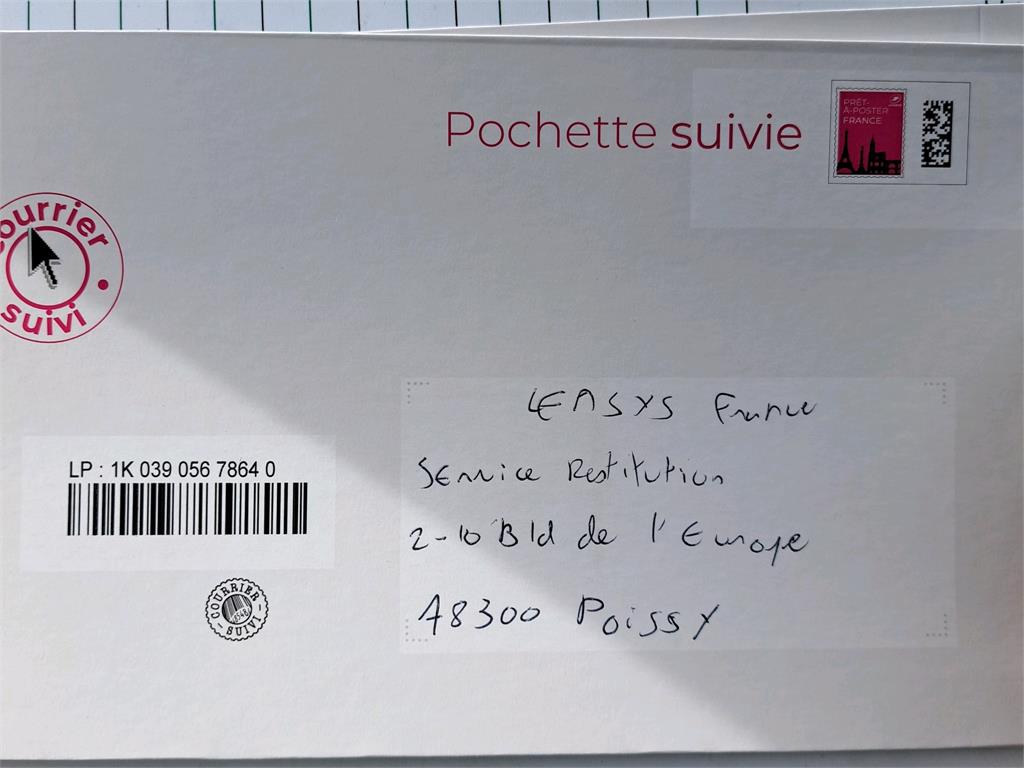 Pochette suivie
PRÊT-
À-POSTER
FRANCE
courrier
suivi
LP : 1K 039 056 7864 0
COURRIER
SUIVI
LEASYS France
Service Restitution
2-10 Bld de l'Europe
78300 Poissy